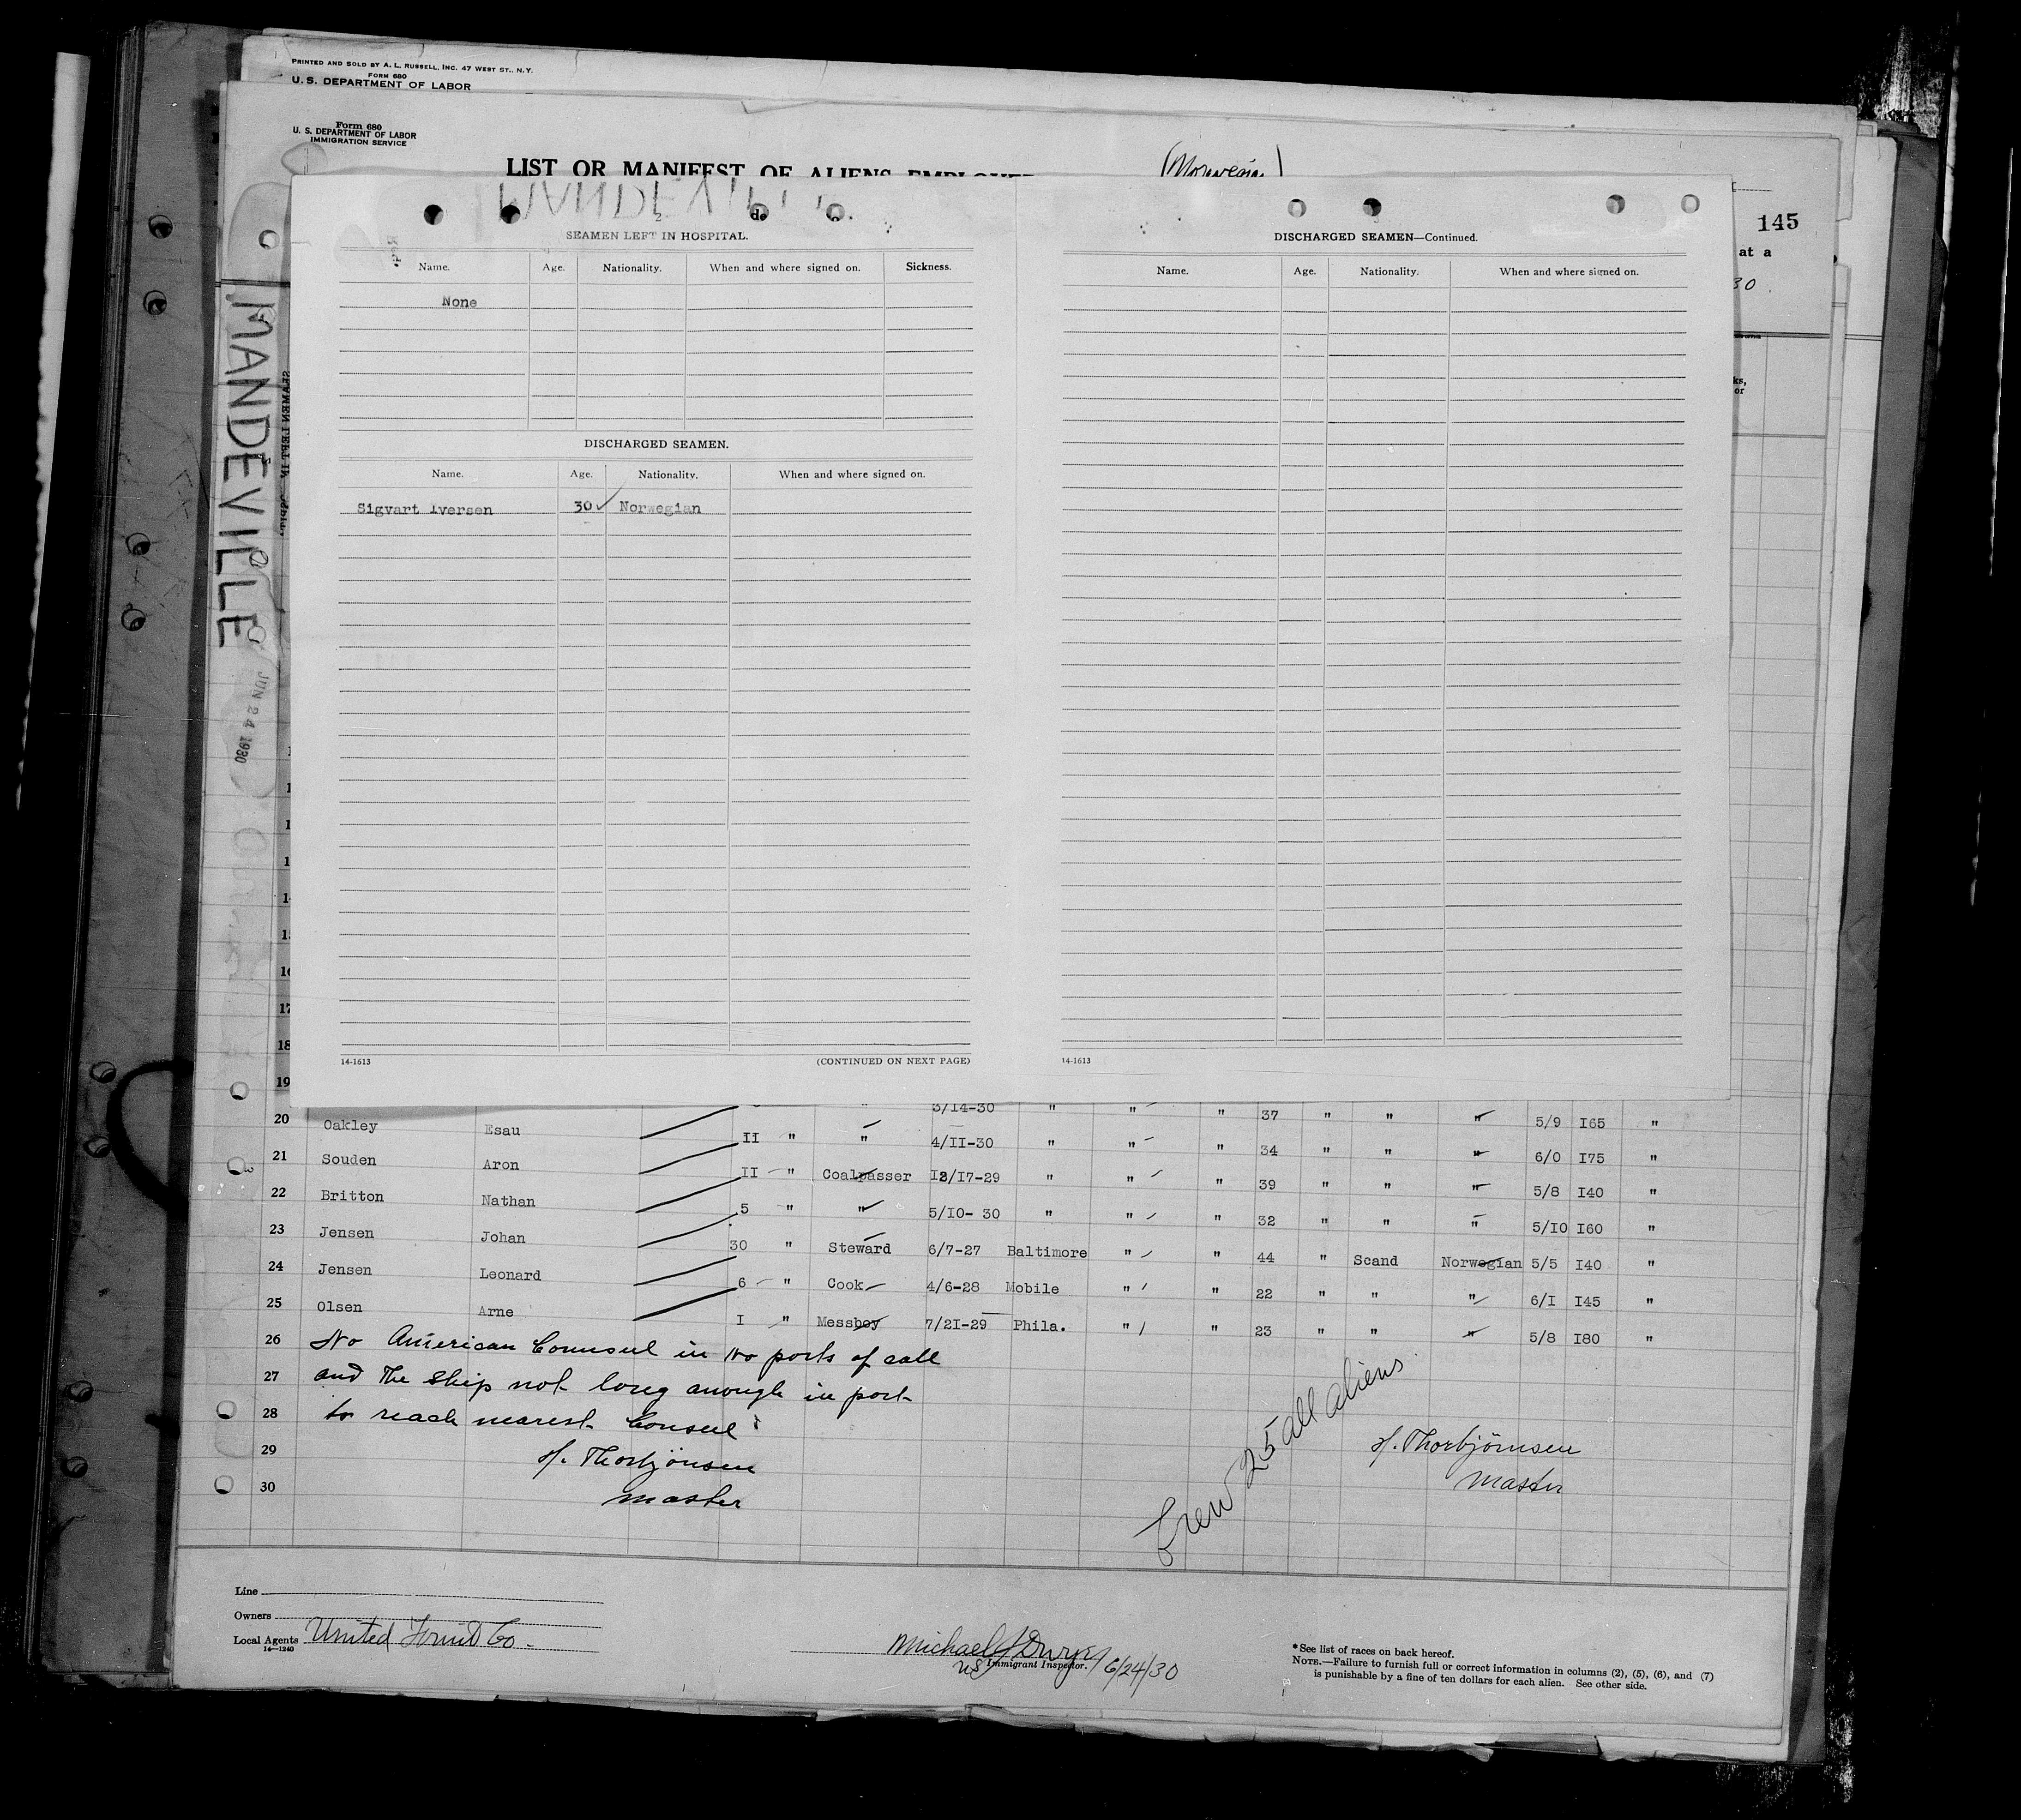 PRINTED AND SOLD BY A. L. RUSSELL, INC. 47 WEST ST., N.Y.
FORM 680
U. S. DEPARTMENT OF LABOR
Form 680
U. S. DEPARTMENT OF LABOR
IMMIGRATION SERVICE
LIST OR MANIFEST OF ALIENS EMPLOYED
145
at a
30
MANDEVILLE
JUN 24 1930
SEAMEN LEFT IN HOSPITAL.
Name. Age. Nationality. When and where signed on. Sickness.
None
DISCHARGED SEAMEN.
Name. Age. Nationality. When and where signed on.
Sigvart Iversen 30 ✓ Norwegian
14-1613 (CONTINUED ON NEXT PAGE)
DISCHARGED SEAMEN—Continued.
Name. Age. Nationality. When and where signed on.
14-1613
ks,
or
17
18
19
3/14-30 " " " 37 " " " 5/9 I65 "
20 Oakley Esau II " " 4/II-30 " " " 34 " " " 6/0 I75 "
21 Souden Aron II " Coalpasser I2/I7-29 " " " 39 " " " 5/8 I40 "
22 Britton Nathan 5 " " 5/I0- 30 " " " 32 " " " 5/I0 I60 "
23 Jensen Johan 30 " Steward 6/7-27 Baltimore " " 44 " Scand Norwegian 5/5 I40 "
24 Jensen Leonard 6 " Cook 4/6-28 Mobile " " 22 " " " 6/I I45 "
25 Olsen Arne I " Messboy 7/2I-29 Phila. " " 23 " " " 5/8 I80 "
26 No American Counsul in no ports of call
27 and the ship not long anough in port
28 to reach nearest Consul
29 H. Thorbjönsen
30 master
Crew 25 all aliens
H. Thorbjörnsen
Master
Line
Owners
Local Agents United Fruit Co.
14-1240
Michael J Dwyer
US Immigrant Inspector. 6/24/30
* See list of races on back hereof.
NOTE.—Failure to furnish full or correct information in columns (2), (5), (6), and (7)
is punishable by a fine of ten dollars for each alien. See other side.